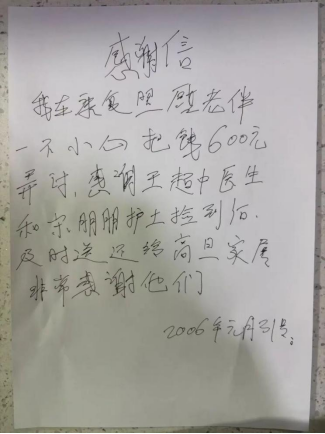 感谢信
我在康复照顾老伴
一不小心把钱600元
弄讨,感谢王超中医生
和宗朋朋护士捡到后.
及时送还给高旦家属
非常感谢他们
2006年元月31号。